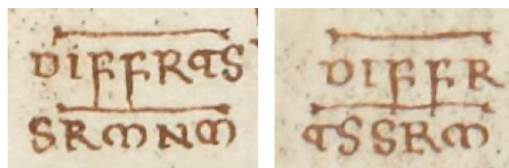 DIFFRTS
SRMNM
DIFFR
TSSRM